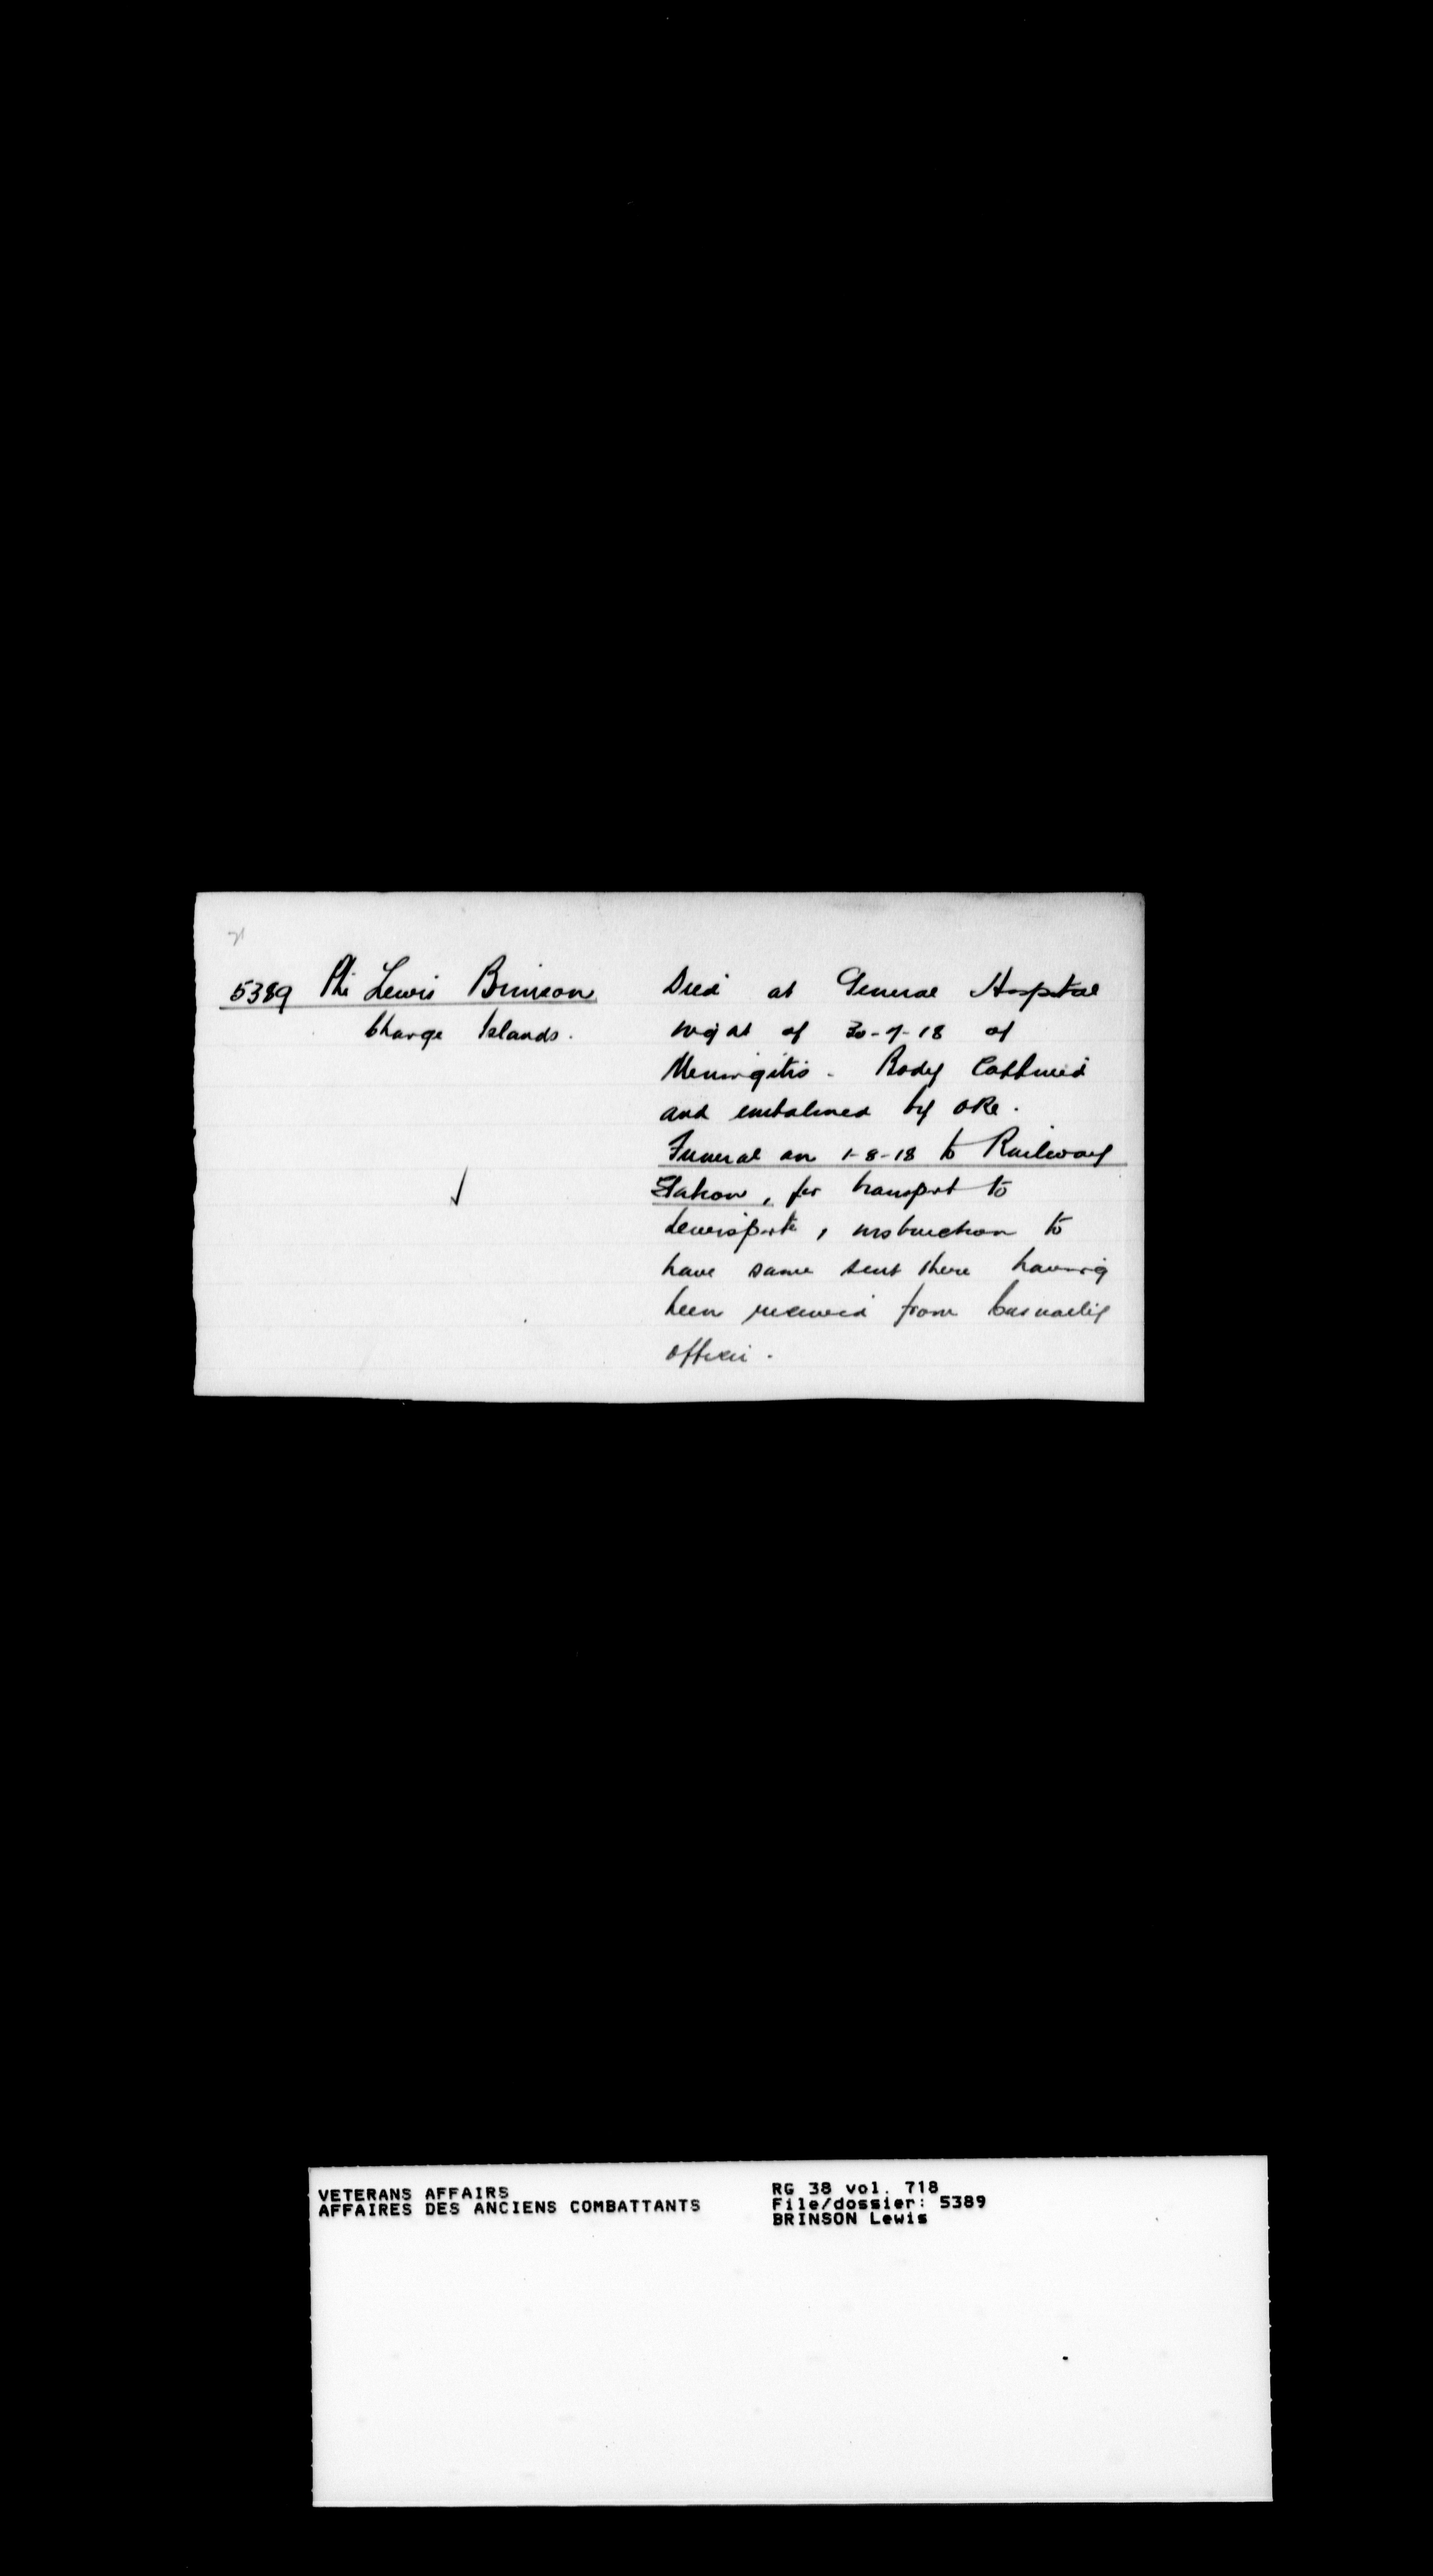 5389 Pte Lewis Brinson
Change Islands.
Died at General Hospital
night of 30-7-18 of
Meningitis. Body Coffined
and embalmed by Oke.
Funeral on 1-8-18 to Railway
Station, for transport to
Lewisporte, instruction to
have same sent there having
been received from Casualty
Officer.
VETERANS AFFAIRS
AFFAIRES DES ANCIENS COMBATTANTS
RG 38 vol. 718
File/dossier: 5389
BRINSON Lewis